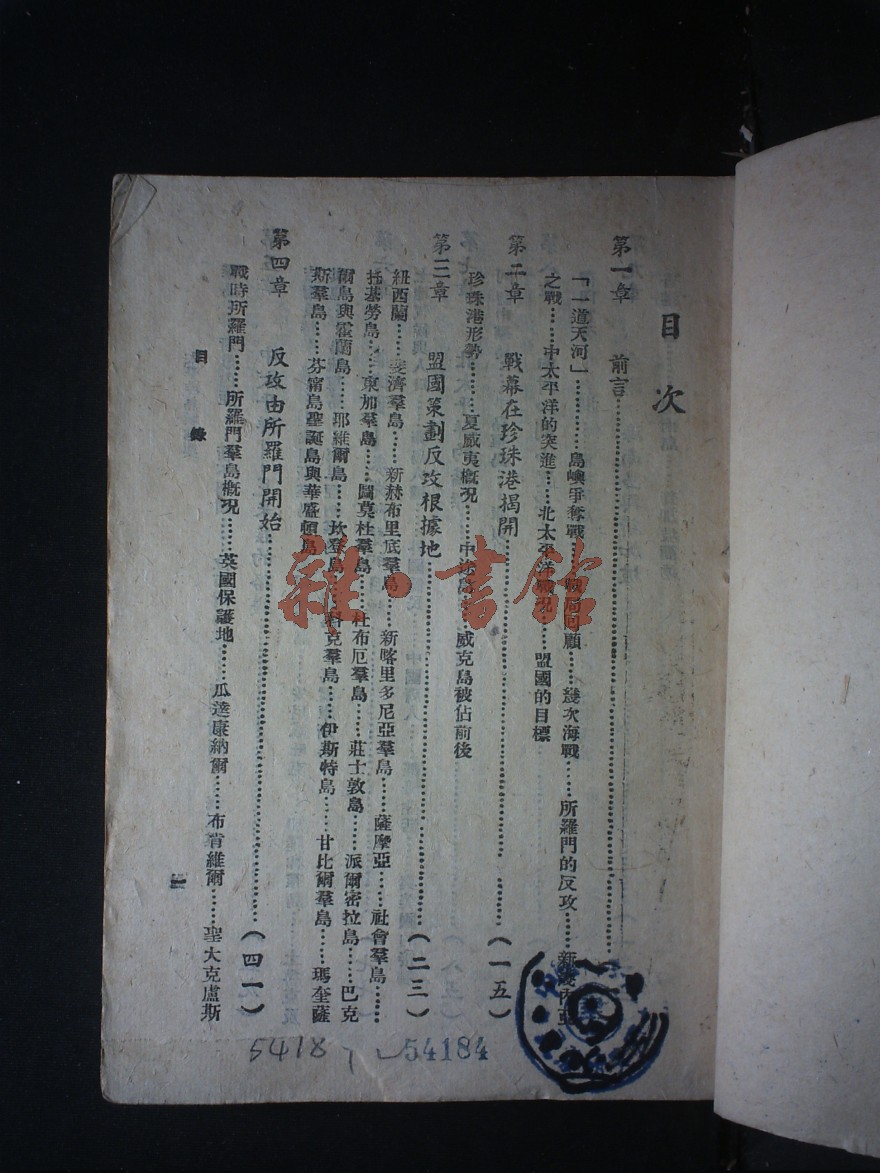 目次
第一章　前言……………………
「一道天河」……島嶼爭奪戰……戰局回顧……幾次海戰……所羅門的反攻……新幾內亞
之戰……中太平洋的突進……北太平洋戰況……盟國的目標
第二章　戰幕在珍珠港揭開……………………(一五)
珍珠港形勢……夏威夷概況……中途島……威克島被佔前後
第三章　盟國策劃反攻根據地……………………(二三)
紐西蘭……斐濟羣島……新赫布里底羣島……新喀里多尼亞羣島……薩摩亞……社會羣島……
托基勞島……東加羣島……圖莫杜羣島……杜布厄羣島……莊士敦島……派爾密拉島……巴克
爾島與霍蘭島……耶維爾島……坎登島……科克羣島……伊斯特島……甘比爾羣島……瑪奎薩
斯羣島……芬甯島聖誕島與華盛頓島
第四章　反攻由所羅門開始……………………(四一)
戰時所羅門……所羅門羣島概況……英國保護地……瓜達康納爾……布肯維爾……聖大克盧斯
目錄
一
雜·書館
5418
54184